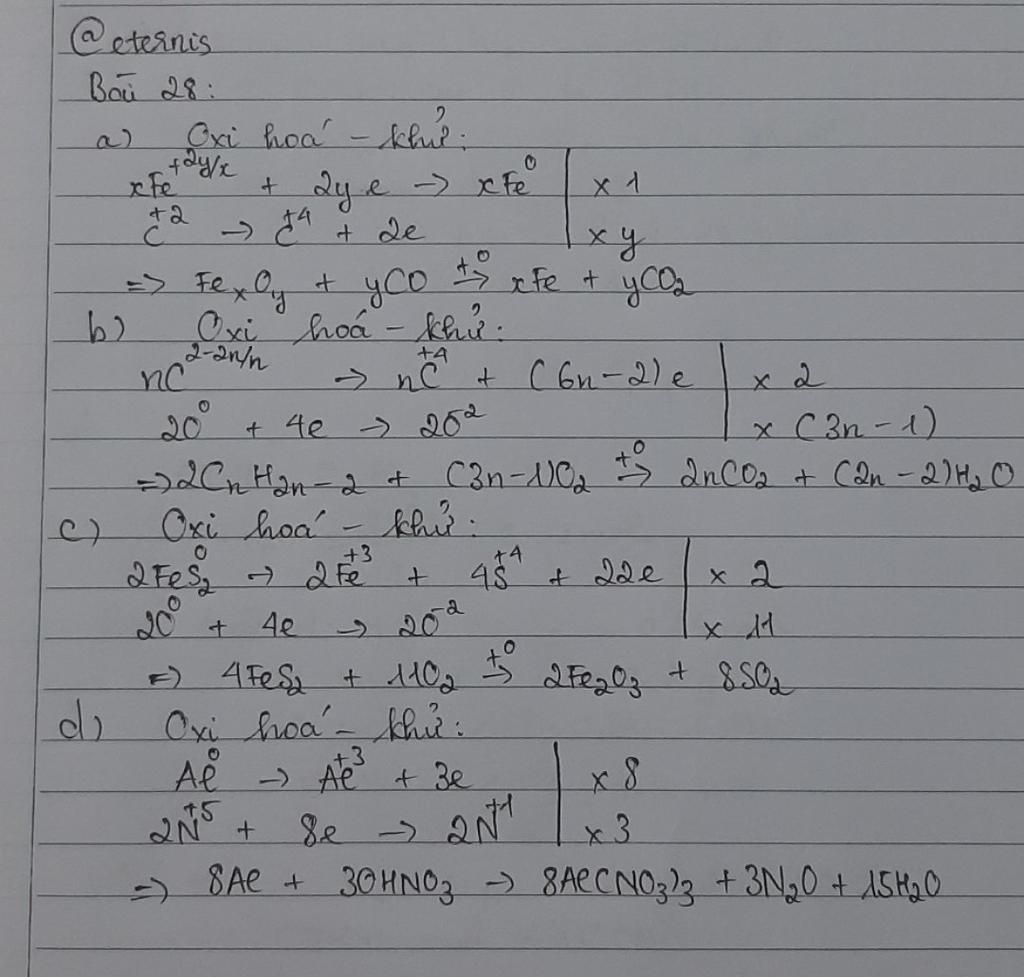 @eternis
Bài 28:
a) Oxi hoá - khử:
xFe^{+2y/x} + 2y e → xFe^{0} | x 1
C^{+2} → C^{+4} + 2e | x y
=> Fe_xO_y + yCO →^{t^0} xFe + yCO₂
b) Oxi hoá - khử:
nC^{2-2n/n} → nC^{+4} + (6n-2)e | x 2
2O^{0} + 4e → 2O^{-2} | x (3n-1)
=> 2C_nH_{2n-2} + (3n-1)O₂ →^{t^0} 2nCO₂ + (2n-2)H₂O
c) Oxi hoá - khử:
2FeS₂^{0} → 2Fe^{+3} + 4S^{+4} + 22e | x 2
2O^{0} + 4e → 2O^{-2} | x 11
=> 4FeS₂ + 11O₂ →^{t^0} 2Fe₂O₃ + 8SO₂
d) Oxi hoá - khử:
Al^{0} → Al^{+3} + 3e | x 8
2N^{+5} + 8e → 2N^{+1} | x 3
=> 8Al + 30HNO₃ → 8Al(NO₃)₃ + 3N₂O + 15H₂O